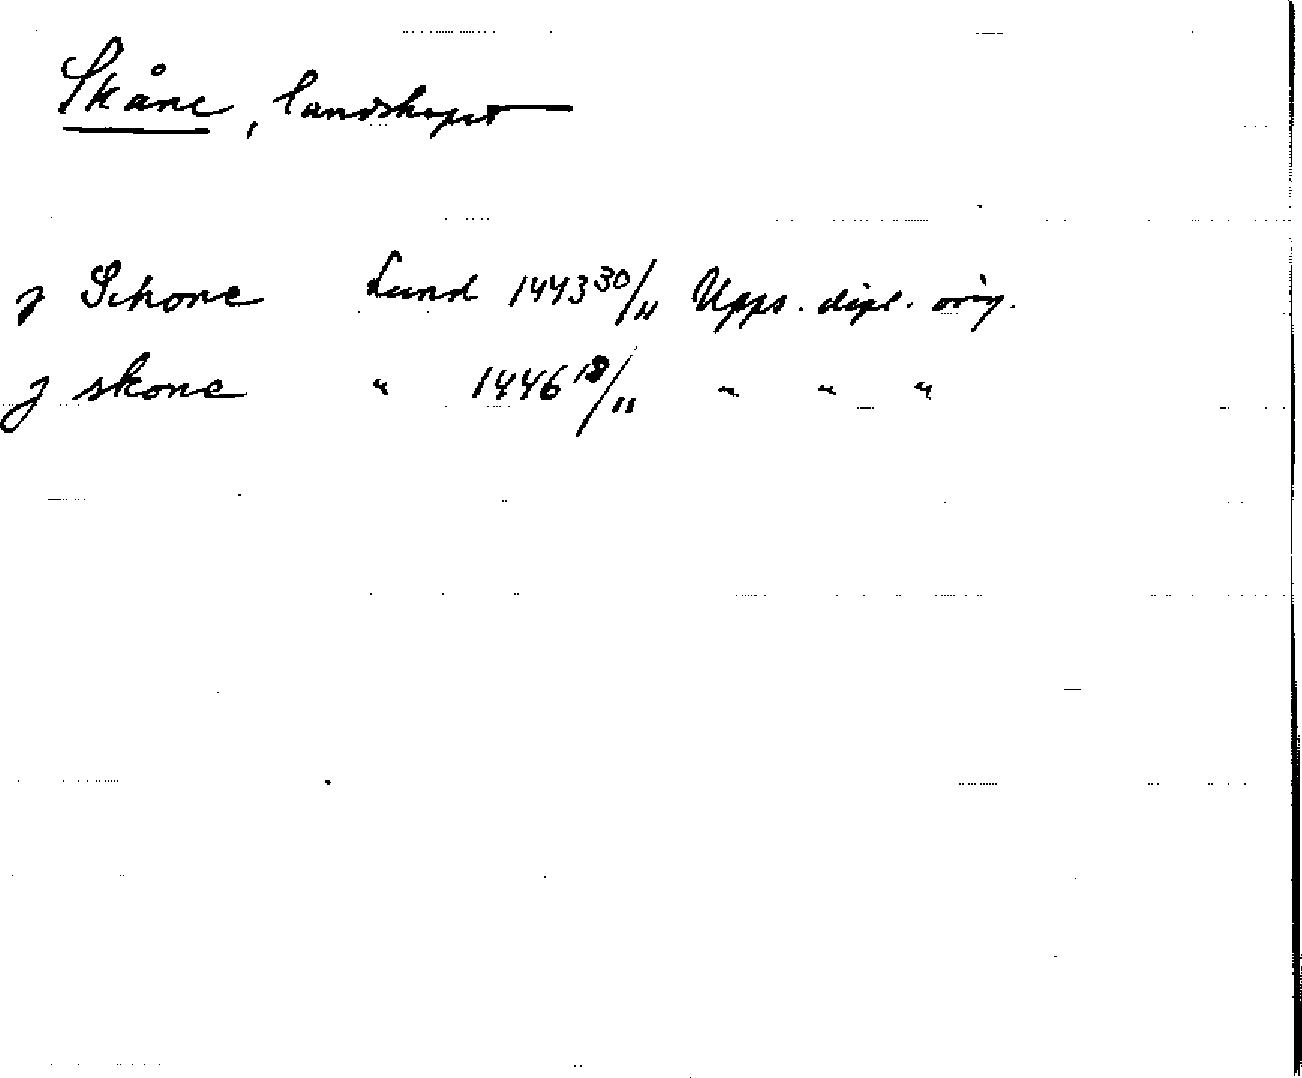 Skåne, landskapet
j Schone Lund 1443 30/11 Upps. dipl. orig.
j skone " 1446 18/11 " " "